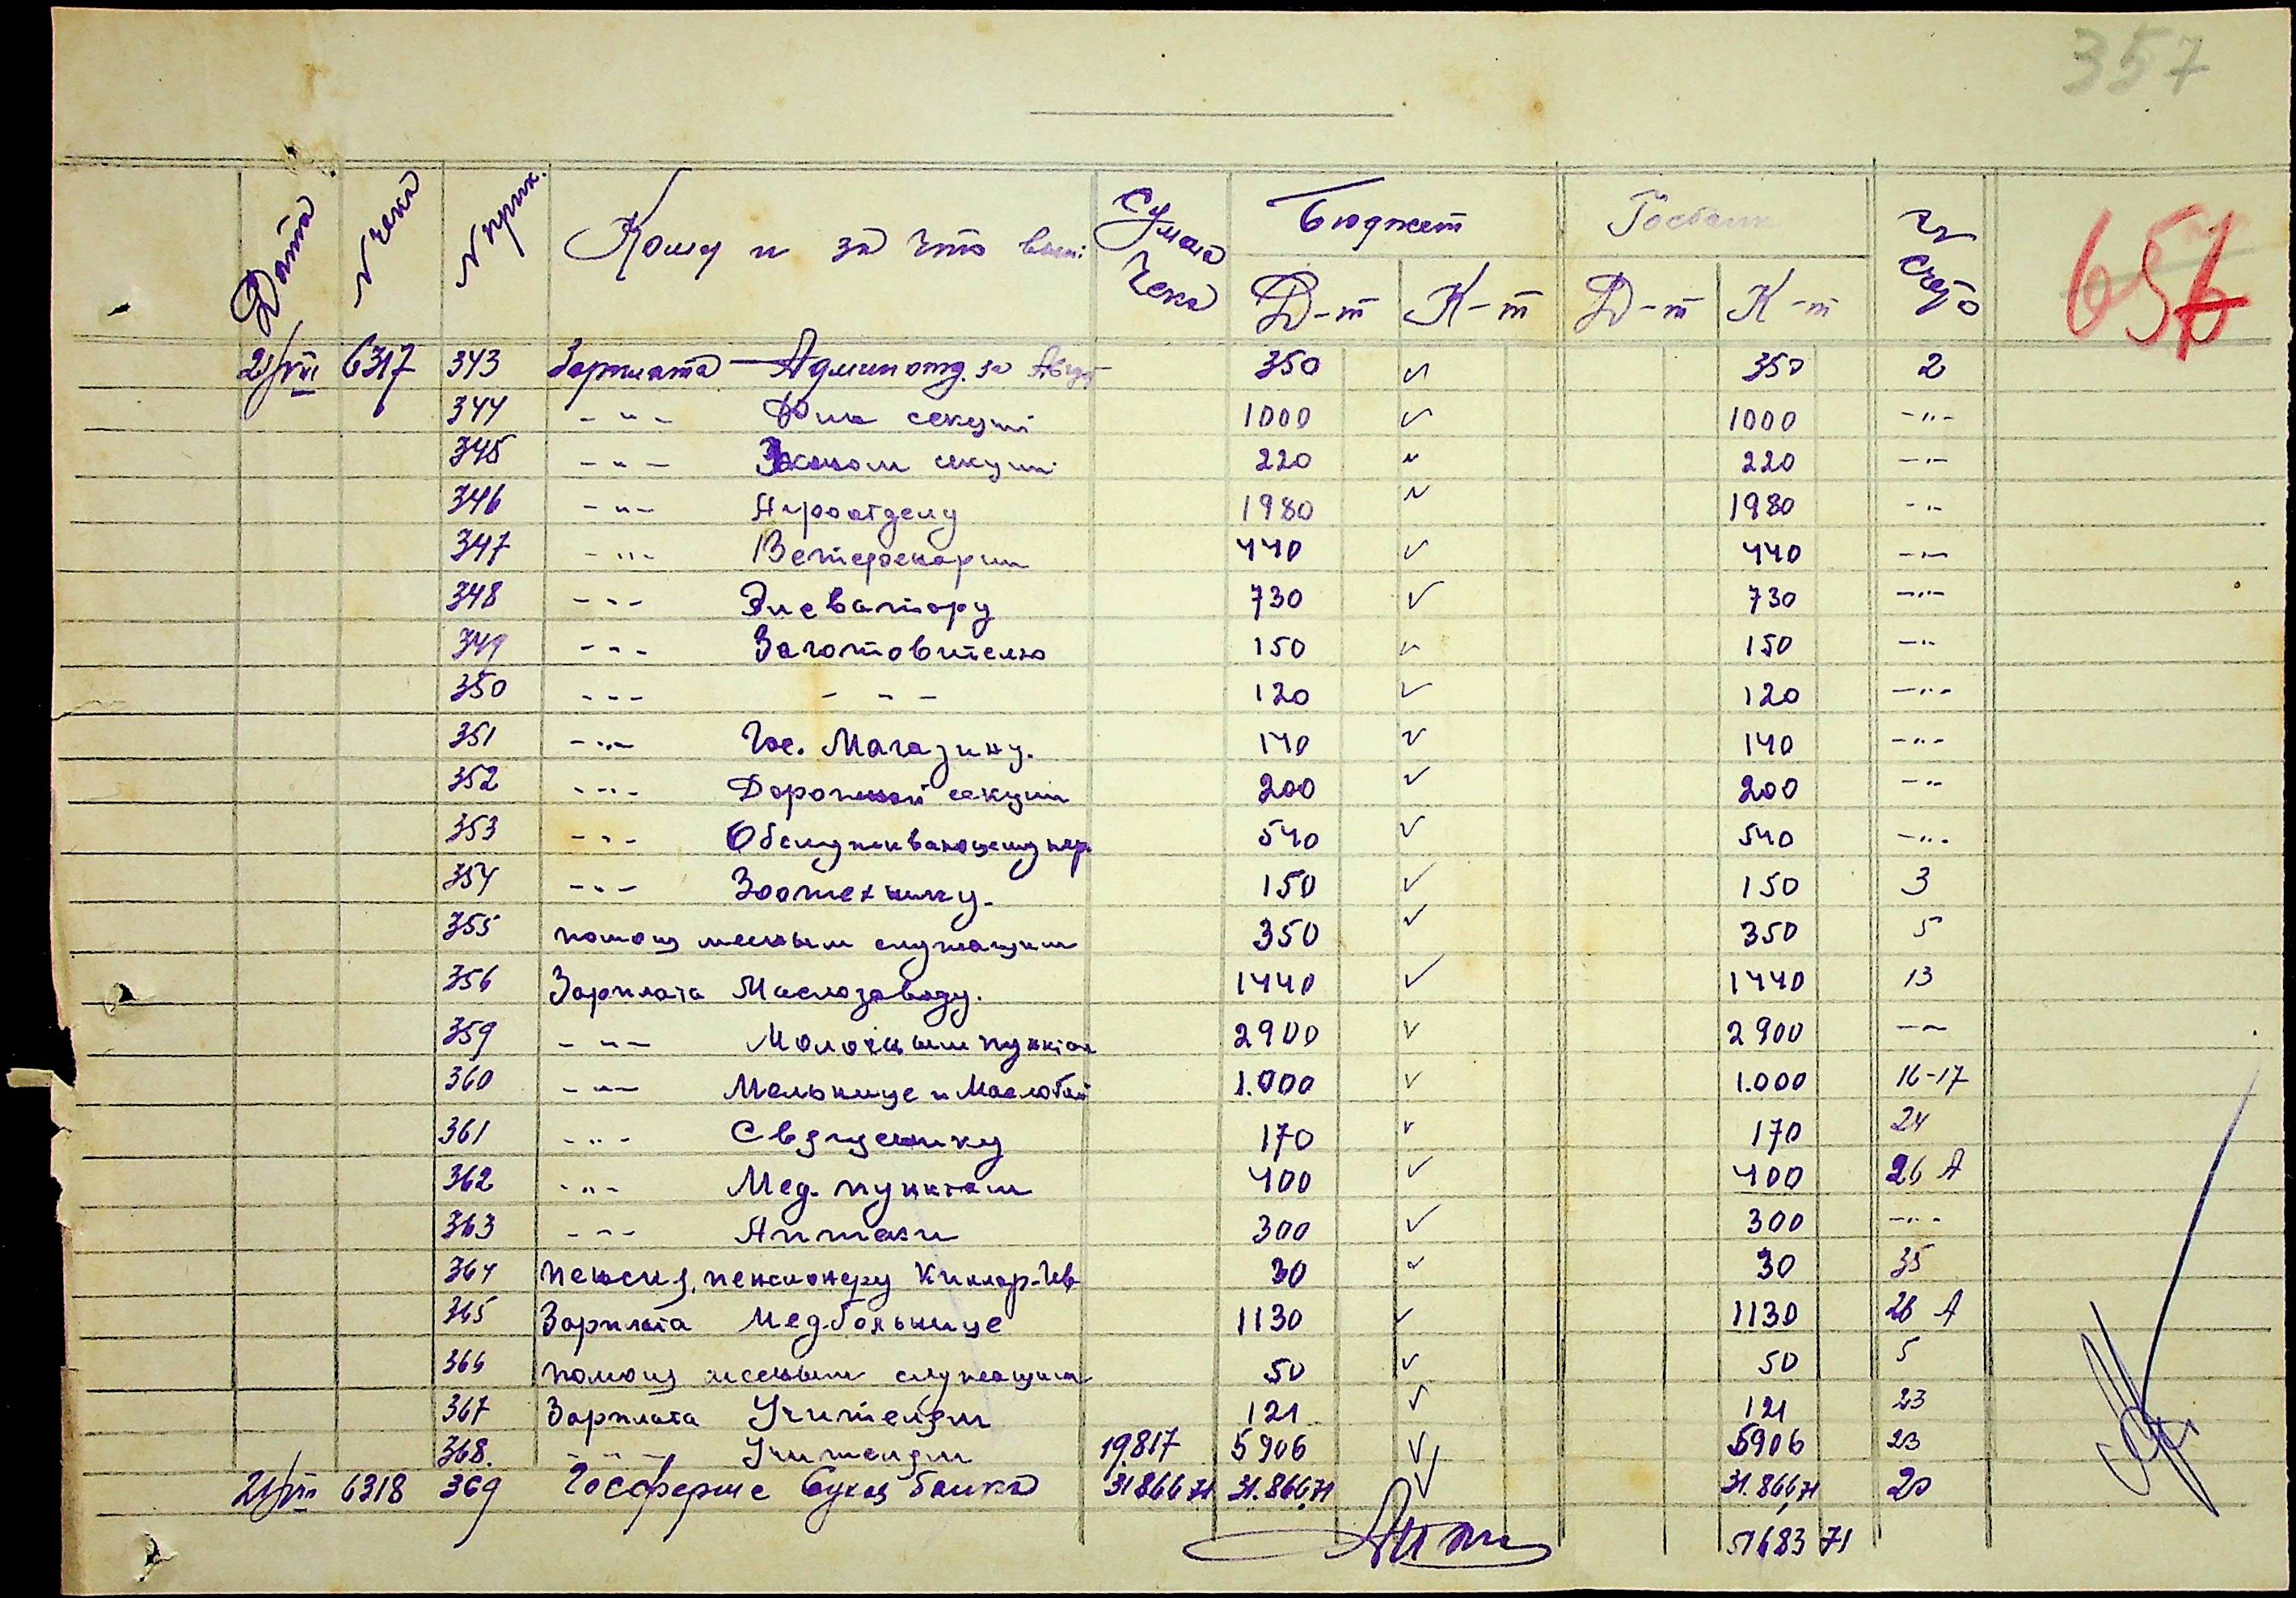 357
657
Дата № чека № прик. Кому и за что Сумма чека Бюджет Госбанк № счета
Д-т К-т Д-т К-т
21/VIII 6317 343 Зарплата — Админотд. за Август 350 ✓ 350 2
344 -"- Фин секции 1000 ✓ 1000 -"-
345 -"- Эконом секции 220 ✓ 220 -"-
346 -"- Агроотделу 1980 ✓ 1980 -"-
347 -"- Ветеренарии 440 ✓ 440 -"-
348 -"- Элеватору 730 ✓ 730 -"-
349 -"- Заготовителю 150 ✓ 150 -"-
350 -"- -"- 120 ✓ 120 -"-
351 -"- Гос. Магазину. 140 ✓ 140 -"-
352 -"- Дорожной секции 200 ✓ 200 -"-
353 -"- Обслуживающему пер. 540 ✓ 540 -"-
354 -"- Зоотехнику. 150 ✓ 150 3
355 помощ месным служащим 350 ✓ 350 5
356 Зарплата Маслозаводу. 1440 ✓ 1440 13
359 -"- Молочным пунктам 2900 ✓ 2900 -"-
360 -"- Мельнице и Маслобой 1.000 ✓ 1.000 16-17
361 -"- 170 ✓ 170 24
362 -"- Мед. пунктам 400 ✓ 400 26 А
363 -"- Аптеки 300 ✓ 300 -"-
364 пенсия, пенсионеру 30 ✓ 30 35
365 Зарплата Мед.больнице 1130 ✓ 1130 26 А
366 помощ месным служащим 50 ✓ 50 5
367 Зарплата Учителям 121 ✓ 121 23
368. -"- Учителям 19.817 5906 ✓ 5906 23
21/VIII 6318 369 Госферме банка 31866 71 31.866,71 ✓ 31.866,71 20
51683 71